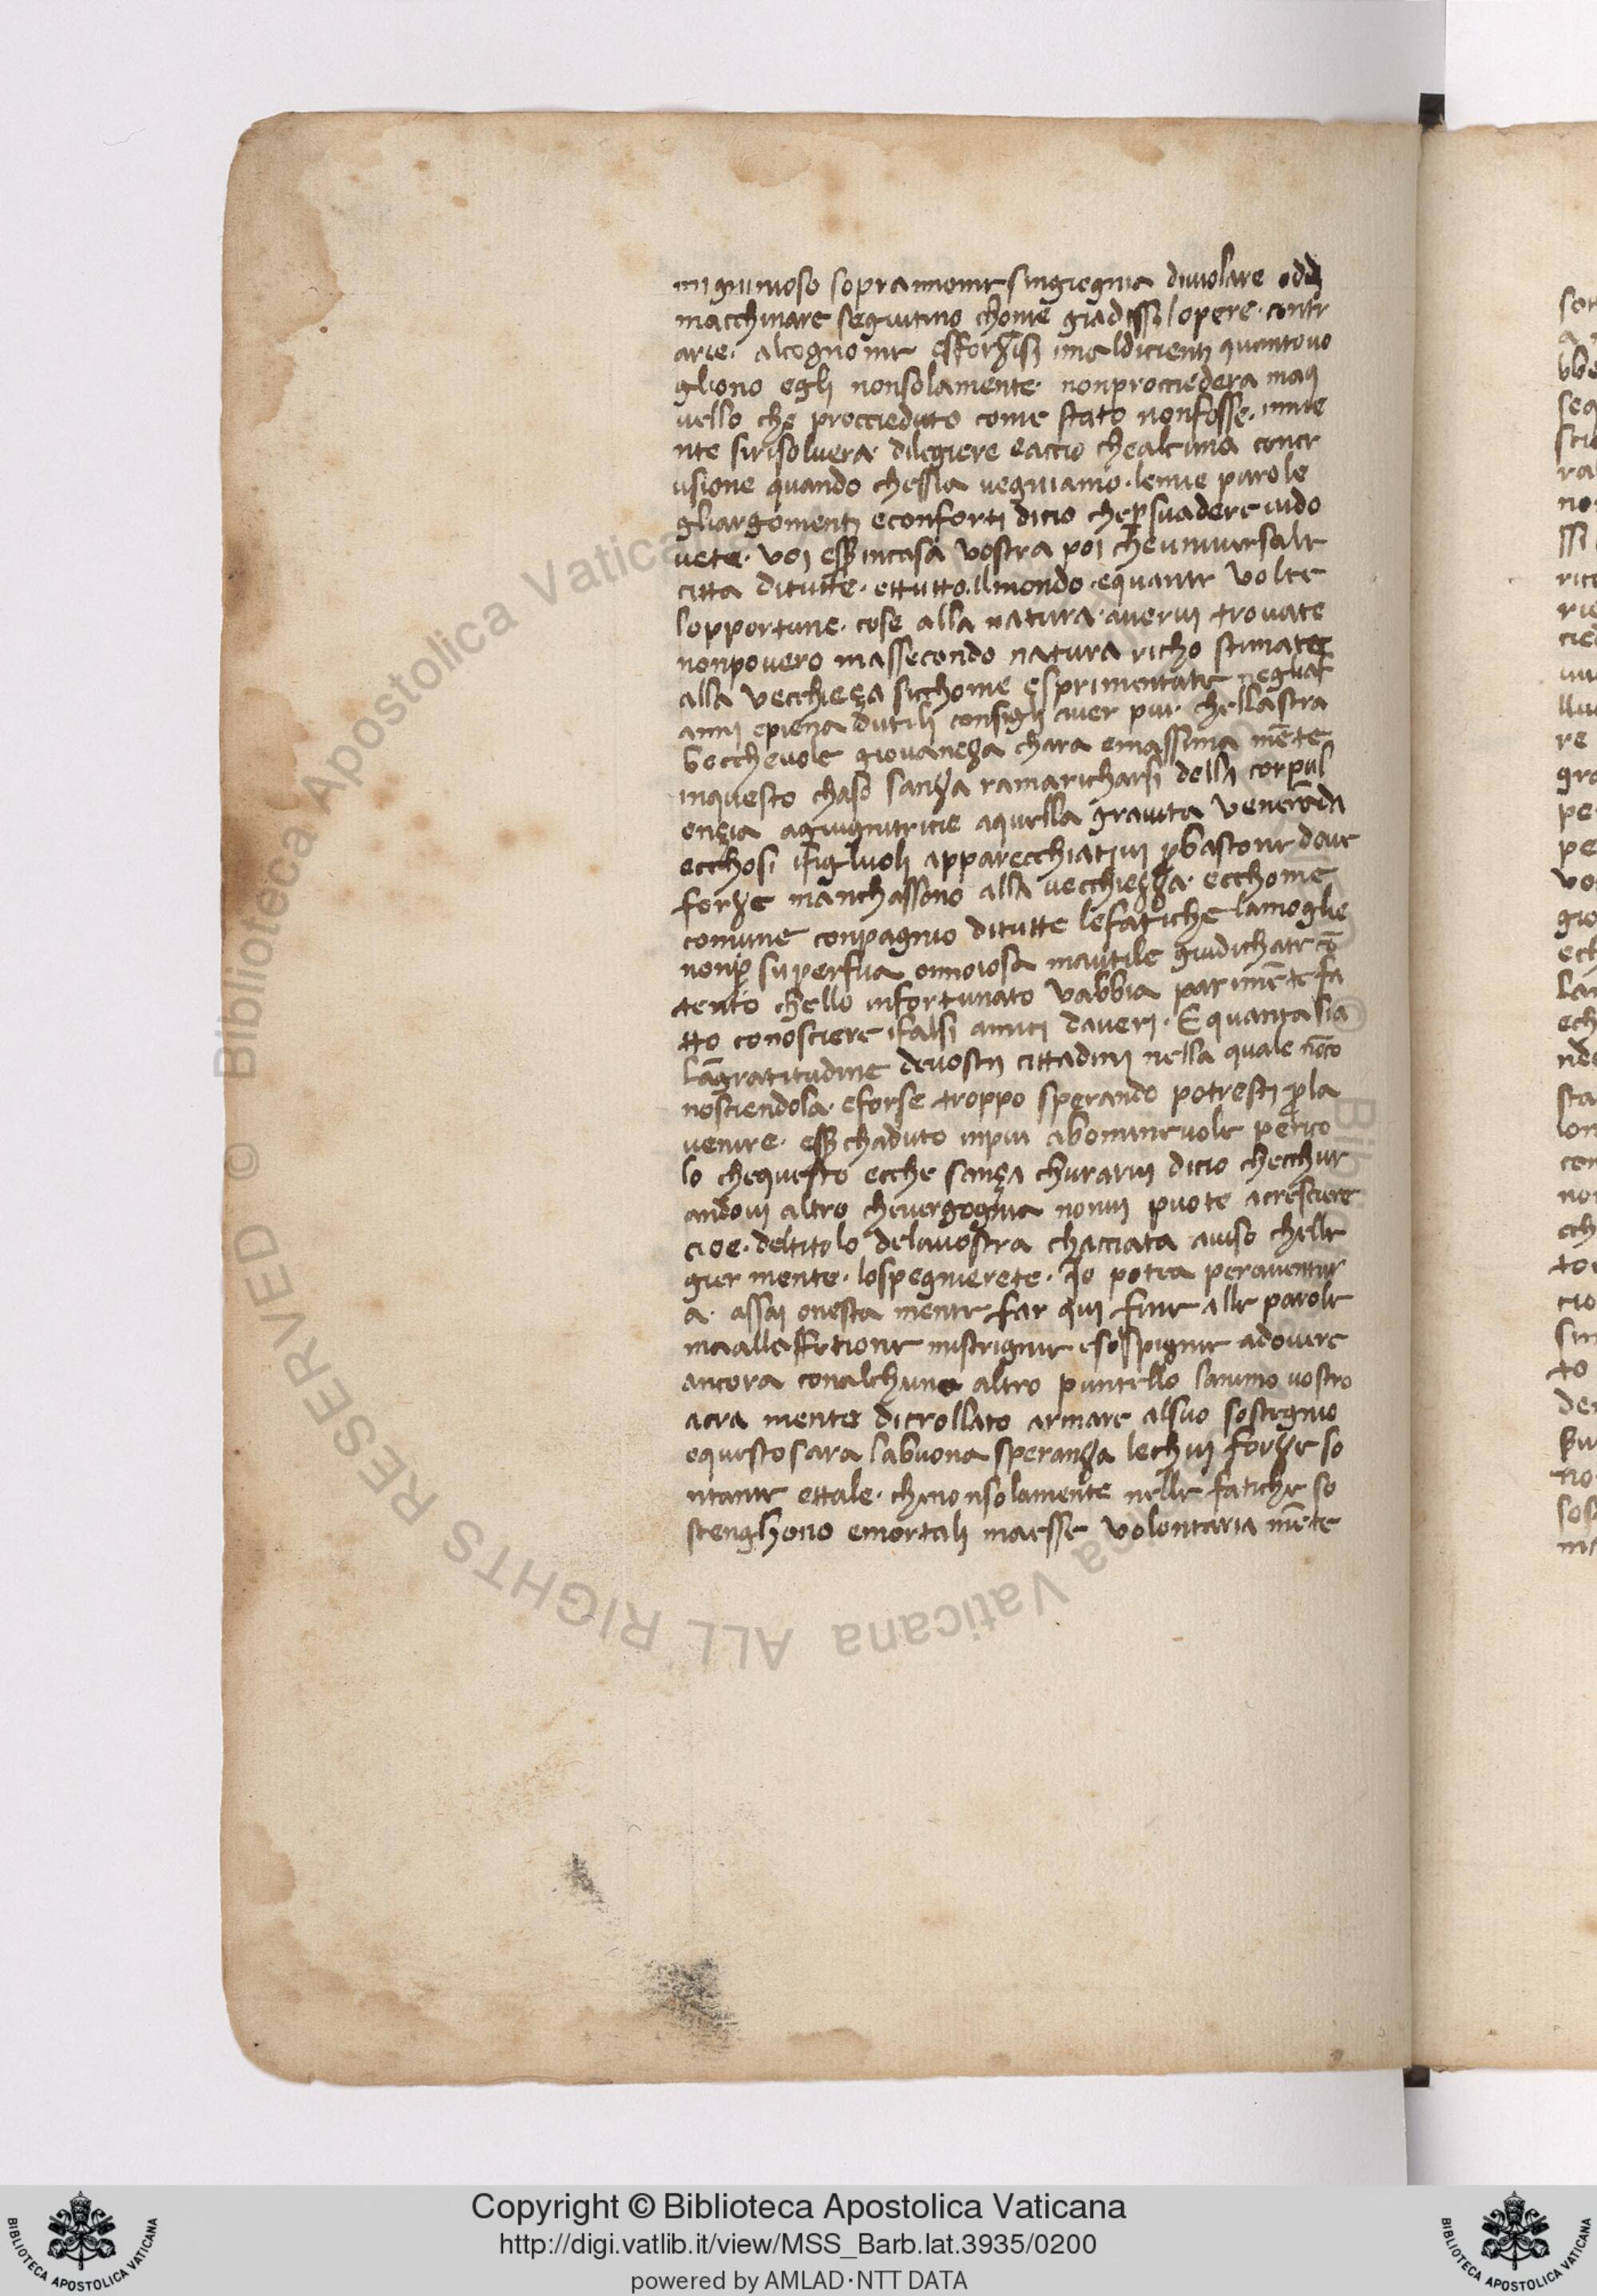 macchinare seguitino chome giadessi lopere. contr
arie. alcognome esforzisi imaldicienti quantovo
gliono egli nonsolamente nonprocciedera maq
uello che proccieduto come stato nonfosse. innie
nte sirisoluera. dilegiere eaccio chealcuna concr
usione quando chessia uegniamo. lemie parole
gliargomenti econforti dicio chepersuadere uido
vete. voi essere incasa vostra poi cheuniuersale
citta ditutte. ettutto.ilmondo. equante volte
lopportune. cose alla natura. averui trovate
nonpovero massecondo natura richo stimate
alla vecchieça sicchome esprimentata negliat
anni epiena dutili consigli aver piu. chellastra
bocchevole giovaneza chara emassima mēte
inquesto chaso sanza ramaricharsi della corpul
ençia agiugnitricie aquella gravita venerāda
ecchosi ifigluoli apparecchiativi p bastone doue
forze manchassono alla vecchiezza. ecchome
comune conpagnio ditutte lefatiche lamoglie
nonp superfua onnoiosa mautile giudichate cō
tento chello infortunato vabbia parimēte fa
tto conosciere ifalsi amici daveri. E quanta sia
lāgratitudine devostri cittadini nella quale nōco
nosciendola. eforse troppo sperando potresti pla
venire. essere chaduto inpiu abominevole perico
lo chequesto ecche sança churarvi dicio checchur
andovi altro chevergognia nonvi puote acresciere
cioe. deltitolo delavostra chacciata aviso chelle
gier mente. lospegnierete. Io potea peraventur
a. assai onesta mente far qui fine alle parole
maallaffetione mistrignie esospignie adovere
ancora conalchuno altro puntello lanimo vostro
acra mente dicrollato armare alsuo sostegnio
equesto sara labuona speranza lechui forze so
ntante ettale. chenonsolamente nelle fatiche so
stenghono emortali maesse volontaria mēte
Copyright © Biblioteca Apostolica Vaticana
http://digi.vatlib.it/view/MSS_Barb.lat.3935/0200
powered by AMLAD·NTT DATA
BIBLIOTECA APOSTOLICA VATICANA
BIBLIOTECA APOSTOLICA VATICANA
© Biblioteca Apostolica Vaticana ALL RIGHTS RESERVED